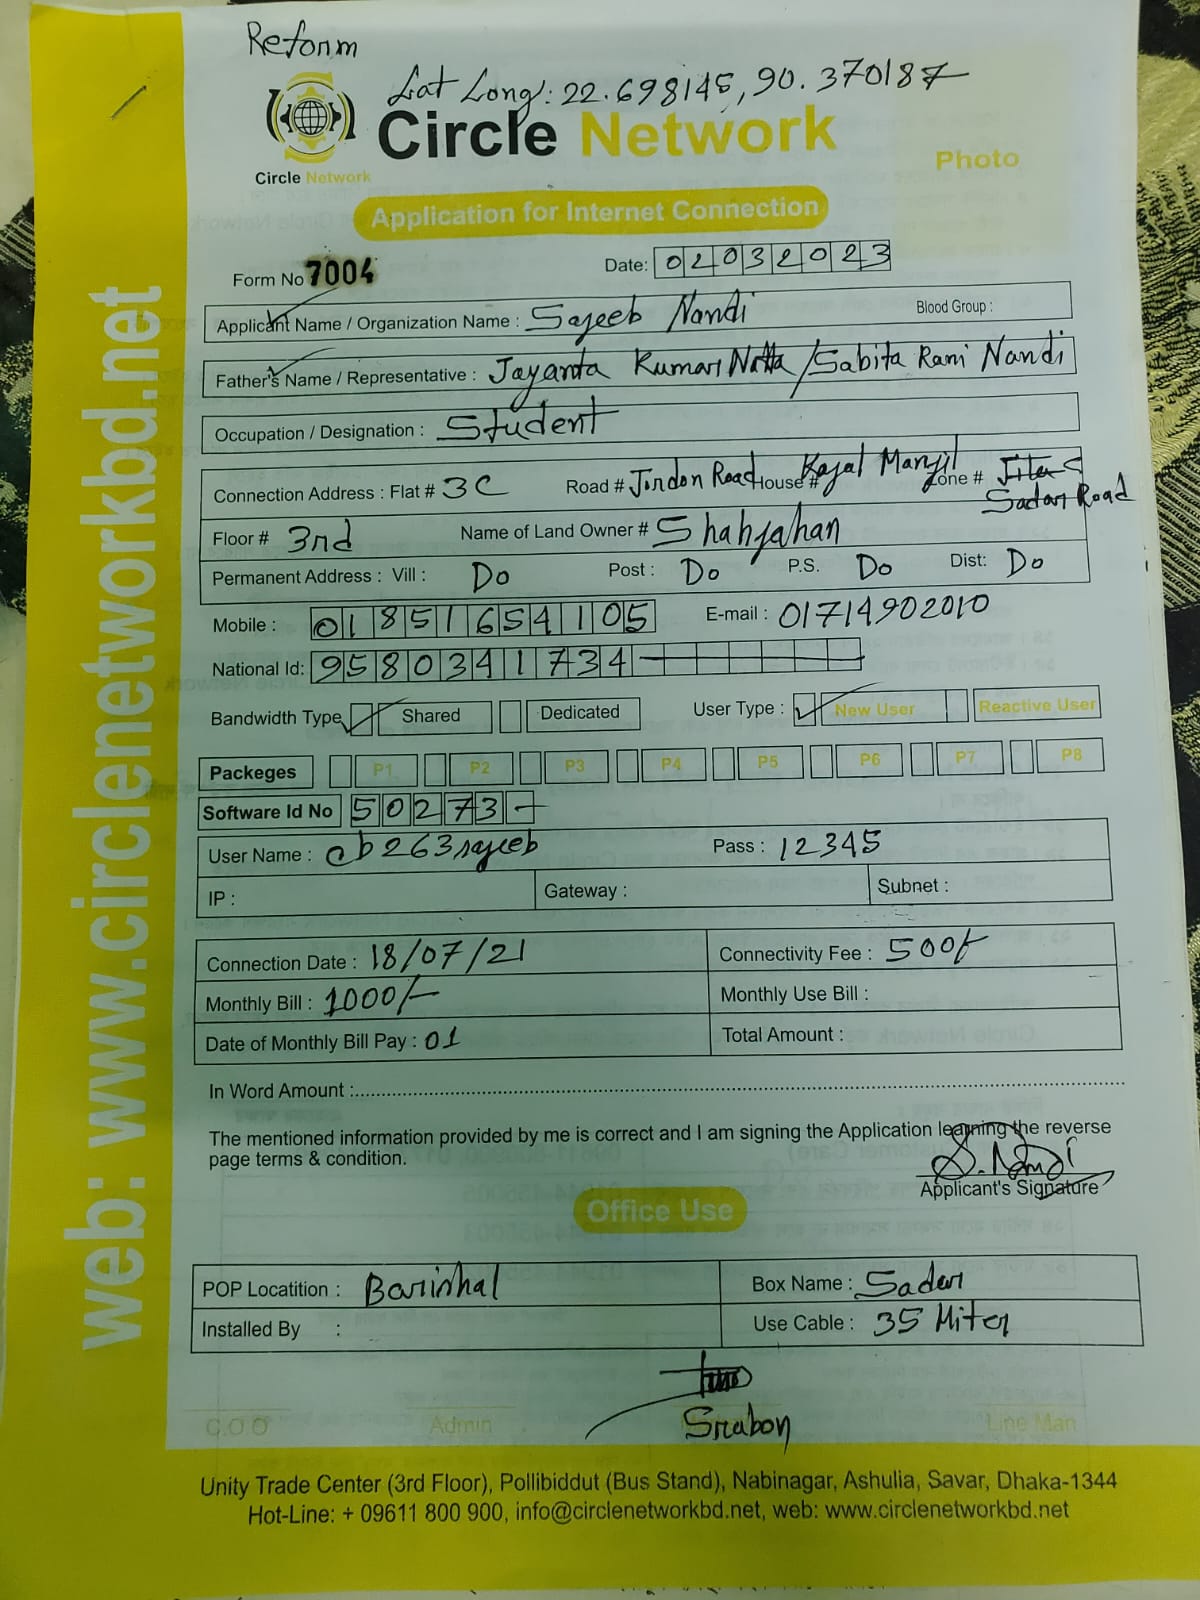 Reform
Lat Long: 22.698145, 90.370187
Circle Network
Circle Network
Photo
Application for Internet Connection
Form No 7004 Date: 02032023
Applicant Name / Organization Name : Sajeeb Nandi Blood Group :
Father's Name / Representative : Jayanta Kumar Natta/Sabita Rani Nandi
Occupation / Designation : Student
Connection Address : Flat # 3C Road # Jordon Road House # Kajal Manjil Zone #
Sadar Road
Floor # 3rd Name of Land Owner # Shahjahan
Permanent Address : Vill : Do Post : Do P.S. Do Dist: Do
Mobile : 01851654105 E-mail : 01714902010
National Id: 9580341734
Bandwidth Type Shared Dedicated User Type : New User Reactive User
Packeges P1 P2 P3 P4 P5 P6 P7 P8
Software Id No 50273
User Name : cb263sajeeb Pass : 12345
IP : Gateway : Subnet :
Connection Date : 18/07/21 Connectivity Fee : 500/-
Monthly Bill : 1000/- Monthly Use Bill :
Date of Monthly Bill Pay : 01 Total Amount :
In Word Amount :
The mentioned information provided by me is correct and I am signing the Application learning the reverse
page terms & condition.
S. Nandi
Applicant's Signature
Office Use
POP Locatition : Barishal Box Name : Sadar
Installed By : Use Cable : 35 Miter
Srabon
C.O.O Admin Line Man
Unity Trade Center (3rd Floor), Pollibiddut (Bus Stand), Nabinagar, Ashulia, Savar, Dhaka-1344
Hot-Line: + 09611 800 900, info@circlenetworkbd.net, web: www.circlenetworkbd.net
web: www.circlenetworkbd.net